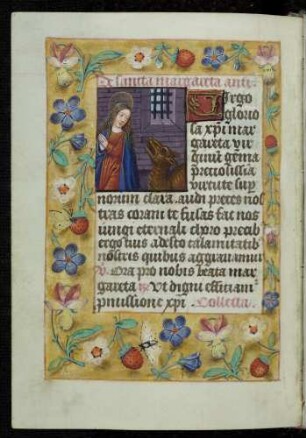 De sancta margareta anti
Virgo
glorio
sa xpi mar
gareta vir
ginum gema
preciosissia
virtute supn
norum clara. audi preces nos
tras coram te fusas fac nos
iungi eternali choro precib
ergo tuis adesto calamitatib
nostris quibus aggrauamur
v Ora pro nobis beata mar
gareta R Vt digni efficiam
pmissione xpi. Collecta.